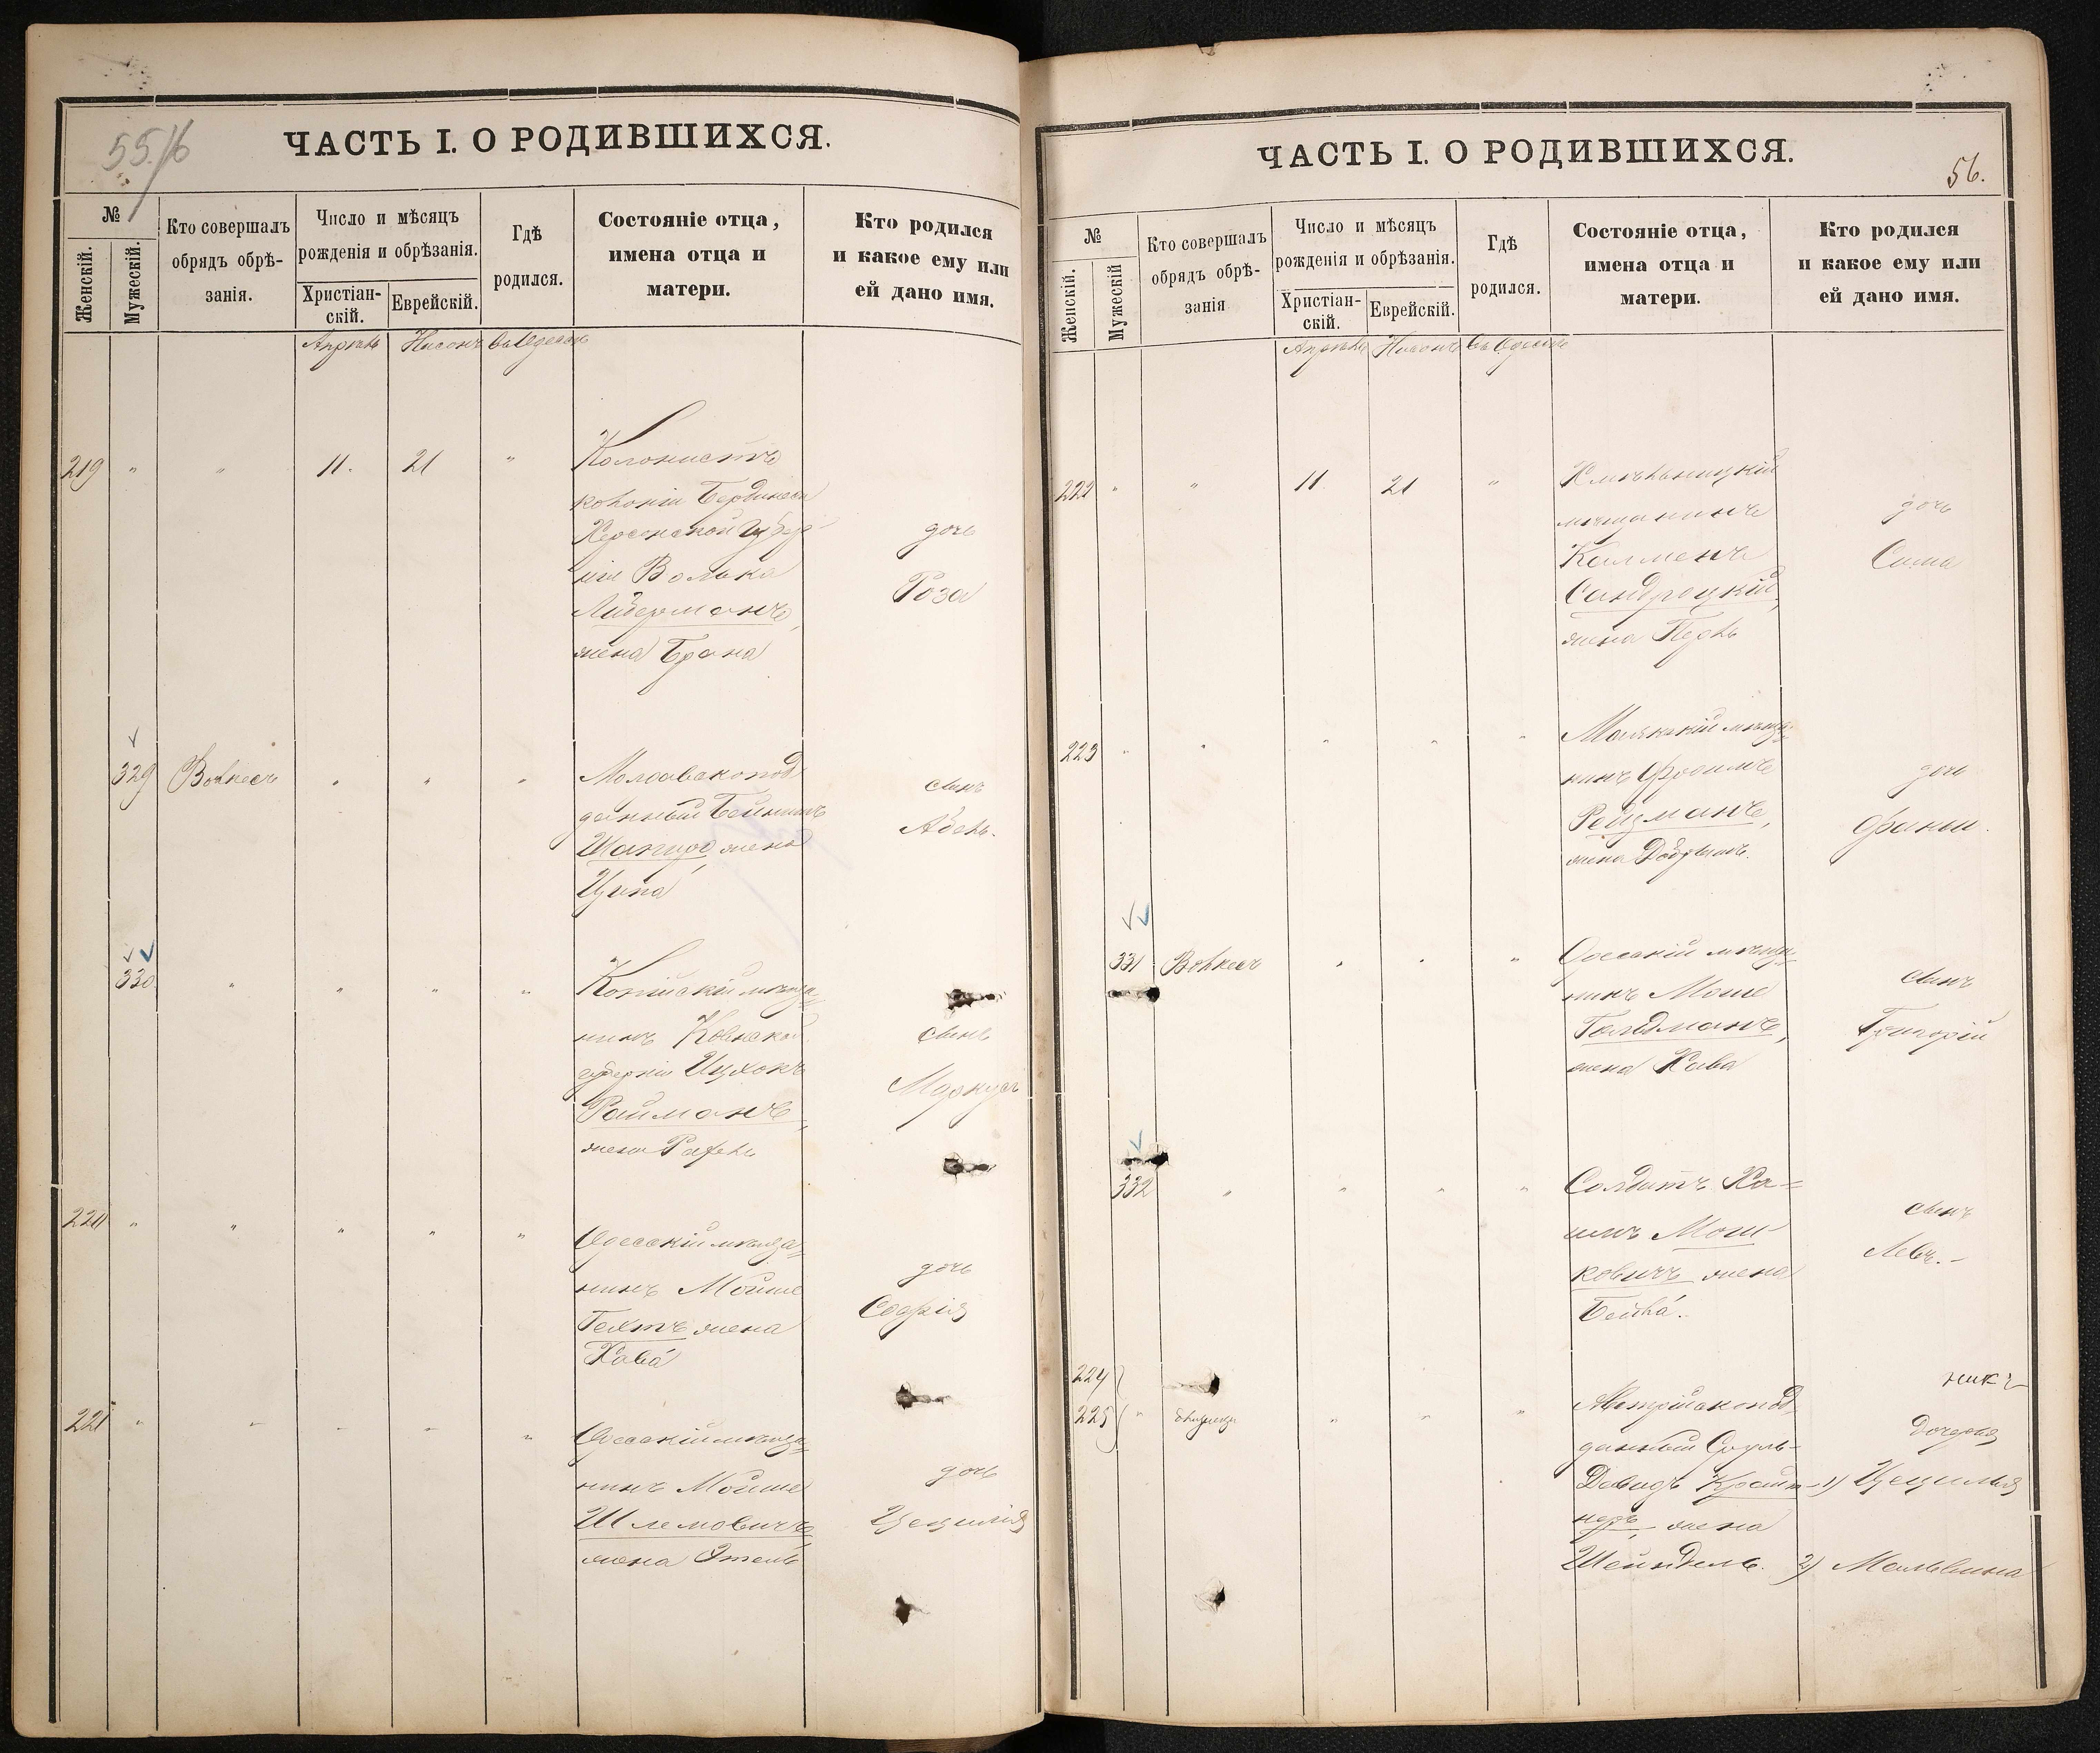 55/6
ЧАСТЬ I. О РОДИВШИХСЯ.
№
Женскій.
Мужескій.
Кто совершалъ
обрядъ обрѣ-
занія.
Число и мѣсяцъ
рожденія и обрѣзанія.
Христіан-
скій.
Еврейскій.
Гдѣ
родился.
Состояніе отца,
имена отца и
матери.
Кто родился
и какое ему или
ей дано имя.
Апрѣль Нисонъ въ Одессѣ
219 " " 11. 21 "
Колонистъ
колоніи
Херсонской Губер-
ніи Волька
Либерманъ,
жена Брана
дочь
Роза
329 Волкесъ " " "
Молдавскопод
данный
Шапиро, жена
Ципа
сынъ
Абель.
330. " " " "
мѣща-
нинъ Ковнской
губерніи Ицхокъ
Райманъ,
жена Рафель
сынъ
Маркусъ
220 " " " " "
Одесскій мѣща-
нинъ Мойше
Гехтъ жена
Хава
дочь
Софія
221 " " " " "
Одесскій мѣща-
нинъ Мойше
Шлемовичъ,
жена Этель
дочь
Цецилія
ЧАСТЬ I. О РОДИВШИХСЯ.
56.
№
Женскій.
Мужескій
Кто совершалъ
обрядъ обрѣ-
занія
Число и мѣсяцъ
рожденія и обрѣзанія.
Христіан-
скій.
Еврейскій.
Гдѣ
родился.
Состояніе отца,
имена отца и
матери.
Кто родился
и какое ему или
ей дано имя.
Апрѣль Нисонъ въ Одессѣ
222 " " 11 21 "
Хмѣльницкій
мѣщанинъ
Калменъ
Сандроцкій,
жена Перль
дочь
Сима
223 " " " " "
Маякскій мѣща-
нинъ Фроимъ
Рейзманъ,
жена
дочь
Фанни.
331 Волкесъ " " "
Одесскій мѣща-
нинъ Моше
Гольдманъ,
жена Хава
сынъ
Григорій
332 " " " "
Солдатъ Ха-
имъ Мош-
ковичъ жена
Бейла.
сынъ
Левъ.-
224
225 " близнецы " " "
Австрійскопод
данный Сруль-
Давидъ Крайт-
неръ, жена
Шейндель.
никъ
Дочеря
1) Цецилія
2) Мальвина